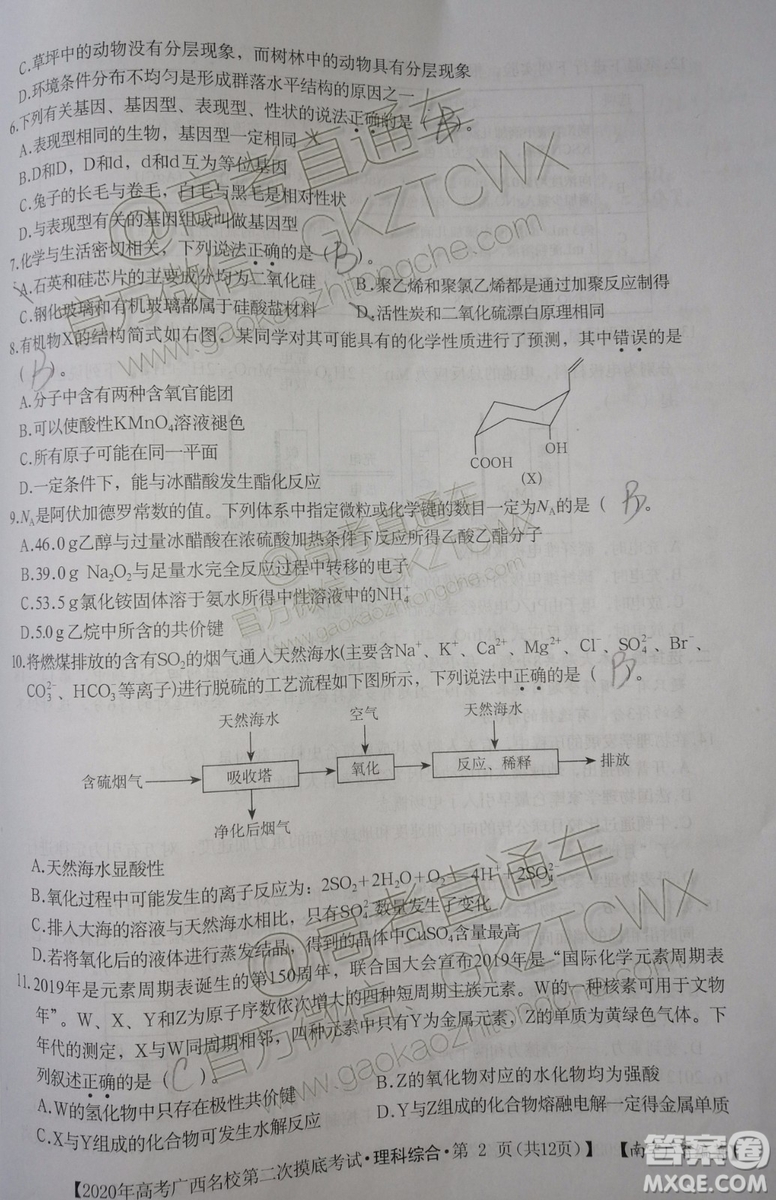 C.草坪中的动物没有分层现象，而树林中的动物具有分层现象
D.环境条件分布不均匀是形成群落水平结构的原因之一
6.下列有关基因、基因型、表现型、性状的说法正确的是（ B ）。
A.表现型相同的生物，基因型一定相同
B.D和D，D和d，d和d互为等位基因
C.兔子的长毛与卷毛，白毛与黑毛是相对性状
D.与表现型有关的基因组成叫做基因型
7.化学与生活密切相关，下列说法正确的是（ B ）。
A.石英和硅芯片的主要成分均为二氧化硅 B.聚乙烯和聚氯乙烯都是通过加聚反应制得
C.钢化玻璃和有机玻璃都属于硅酸盐材料 D.活性炭和二氧化硫漂白原理相同
8.有机物X的结构简式如右图，某同学对其可能具有的化学性质进行了预测，其中错误的是
（ B ）。
A.分子中含有两种含氧官能团
B.可以使酸性KMnO₄溶液褪色
C.所有原子可能在同一平面
D.一定条件下，能与冰醋酸发生酯化反应
COOH
OH
(X)
9.Nₐ是阿伏加德罗常数的值。下列体系中指定微粒或化学键的数目一定为Nₐ的是（ B ）。
A.46.0 g乙醇与过量冰醋酸在浓硫酸加热条件下反应所得乙酸乙酯分子
B.39.0 g Na₂O₂与足量水完全反应过程中转移的电子
C.53.5 g氯化铵固体溶于氨水所得中性溶液中的NH₄⁺
D.5.0 g乙烷中所含的共价键
10.将燃煤排放的含有SO₂的烟气通入天然海水(主要含Na⁺、K⁺、Ca²⁺、Mg²⁺、Cl⁻、SO₄²⁻、Br⁻、
CO₃²⁻、HCO₃⁻等离子)进行脱硫的工艺流程如下图所示，下列说法中正确的是（ B ）。
天然海水 空气 天然海水
含硫烟气 吸收塔 氧化 反应、稀释 排放
净化后烟气
A.天然海水显酸性
B.氧化过程中可能发生的离子反应为：2SO₂+2H₂O+O₂=4H⁺+2SO₄²⁻
C.排入大海的溶液与天然海水相比，只有SO₄²⁻数量发生了变化
D.若将氧化后的液体进行蒸发结晶，得到的晶体中CaSO₄含量最高
11.2019年是元素周期表诞生的第150周年，联合国大会宣布2019年是“国际化学元素周期表
年”。W、X、Y和Z为原子序数依次增大的四种短周期主族元素。W的一种核素可用于文物
年代的测定，X与W同周期相邻，四种元素中只有Y为金属元素，Z的单质为黄绿色气体。下
列叙述正确的是（ C ）。
A.W的氢化物中只存在极性共价键 B.Z的氧化物对应的水化物均为强酸
C.X与Y组成的化合物可发生水解反应 D.Y与Z组成的化合物熔融电解一定得金属单质
【2020年高考广西名校第二次摸底考试·理科综合·第 2 页(共12页)】 【南
@高考直通车
官方微信：GKZTCWX
www.gaokaozhitongche.com
@高考直通车
官方微信：GKZTCWX
www.gaokaozhitongche.com
@高考直通车
官方微信：GKZTCWX
www.gaokaozhitongche.com
答案圈
MXQE.COM